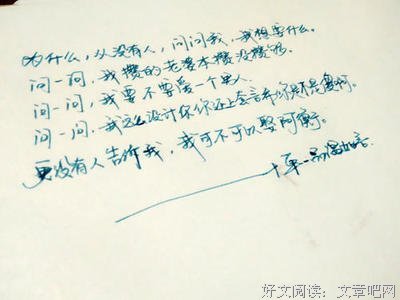 为什么，从没有人，问问我，我想要什么。
问一问，我攒的老婆本攒没攒够。
问一问，我要不要爱一个男人。
问一问，我这么设计你你还上套言希你是不是傻啊。
更没有人告诉我，我可不可以娶阿衡。
——十年一品温如言
好文阅读：文章吧网